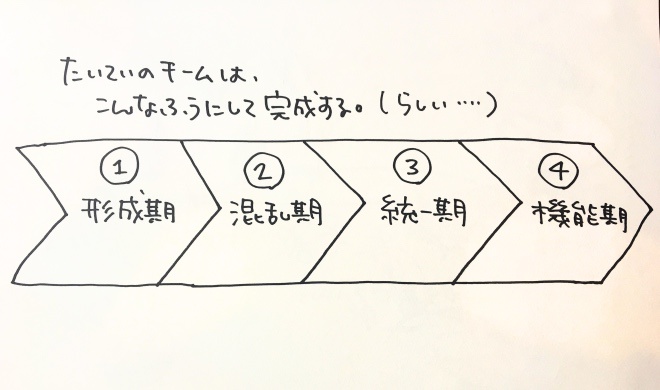 たいていのチームは、
こんなふうにして完成する。(らしい….)
① ② ③ ④
形成期 混乱期 統一期 機能期